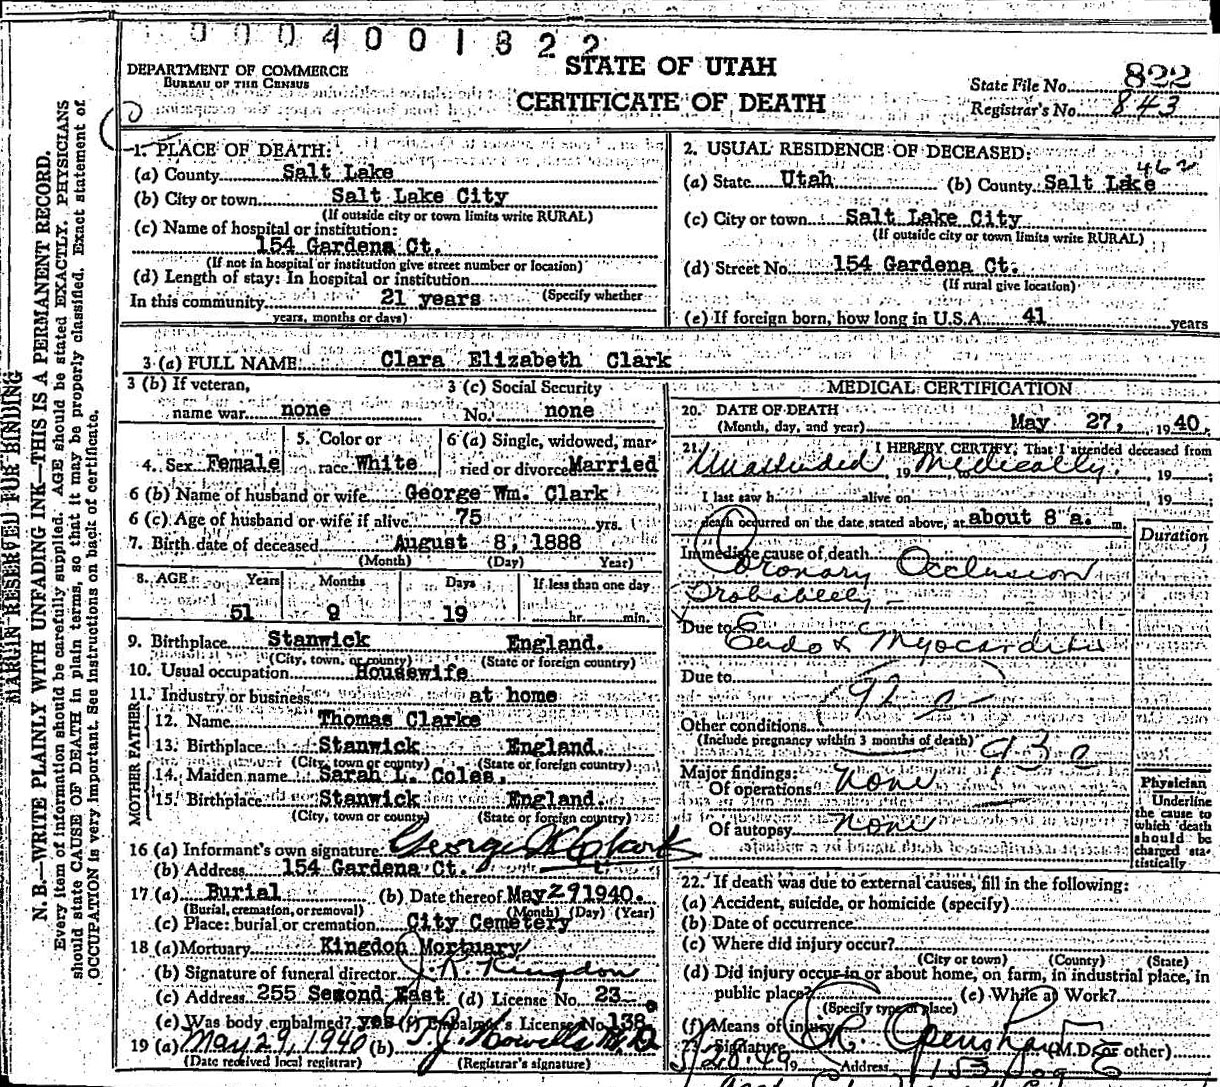 0004001822
STATE OF UTAH
CERTIFICATE OF DEATH
DEPARTMENT OF COMMERCE
BUREAU OF THE CENSUS
State File No. 822
Registrar's No. 843
MARGIN RESERVED FOR BINDING
N. B.—WRITE PLAINLY WITH UNFADING INK—THIS IS A PERMANENT RECORD.
Every item of information should be carefully supplied. AGE should be stated EXACTLY. PHYSICIANS
should state CAUSE OF DEATH in plain terms, so that it may be properly classified. Exact statement of
OCCUPATION is very important. See instructions on back of certificate.
1. PLACE OF DEATH:
(a) County Salt Lake
(b) City or town Salt Lake City
(If outside city or town limits write RURAL)
(c) Name of hospital or institution:
154 Gardena Ct.
(If not in hospital or institution give street number or location)
(d) Length of stay: In hospital or institution
In this community 21 years (Specify whether
years, months or days)
2. USUAL RESIDENCE OF DECEASED:
462
(a) State Utah (b) County Salt Lake
(c) City or town Salt Lake City
(If outside city or town limits write RURAL)
(d) Street No. 154 Gardena Ct.
(If rural give location)
(e) If foreign born, how long in U.S.A. 41 years
3 (a) FULL NAME: Clara Elizabeth Clark
3 (b) If veteran,
name war none
3 (c) Social Security
No. none
4. Sex Female
5. Color or
race White
6 (a) Single, widowed, mar-
ried or divorced Married
6 (b) Name of husband or wife George Wm. Clark
6 (c) Age of husband or wife if alive 75 yrs.
7. Birth date of deceased August 8, 1888
(Month) (Day) Year)
8. AGE Years Months Days If less than one day
51 9 19 hr. min.
9. Birthplace Stanwick England.
(City, town, or county) (State or foreign country)
10. Usual occupation Housewife
11. Industry or business at home
FATHER
12. Name Thomas Clarke
13. Birthplace Stanwick England.
(City, town or county) (State or foreign country)
MOTHER
14. Maiden name Sarah L. Coles.
15. Birthplace Stanwick England.
(City, town or county) (State or foreign country)
16 (a) Informant's own signature George W Clark
(b) Address 154 Gardena Ct.
17 (a) Burial (b) Date thereof May 29 1940.
(Burial, cremation, or removal) (Month) (Day) (Year)
(c) Place: burial or cremation City Cemetery
18 (a) Mortuary Kingdon Mortuary
(b) Signature of funeral director J. K. Kingdon
(c) Address 255 Second East (d) License No. 23
(e) Was body embalmed? yes (f) Embalmer's License No. 138
19 (a) May 29, 1940 (b) T. J. Howells M.D.
(Date received local registrar) (Registrar's signature)
MEDICAL CERTIFICATION
20. DATE OF DEATH
(Month, day, and year) May 27, 1940.
21. I HEREBY CERTIFY: That I attended deceased from
Unattended, 19 Medically, 19 ;
I last saw h alive on , 19 ;
death occurred on the date stated above, at about 8 a. m.
Duration
Immediate cause of death
Coronary Occlusion
Probablely -
Due to Endo & Myocarditis
Due to
92 c
Other conditions
(Include pregnancy within 3 months of death) 93 c
Major findings:
Of operations none
Of autopsy none
Physician
Underline
the cause to
which death
should be
charged sta-
tistically
22. If death was due to external causes, fill in the following:
(a) Accident, suicide, or homicide (specify)
(b) Date of occurrence
(c) Where did injury occur?
(City or town) (County) (State)
(d) Did injury occur in or about home, on farm, in industrial place, in
public place? (e) While at Work?
(Specify type of place)
(f) Means of injury
23. Signature Openshaw (M.D. or other)
19 Address 153 So